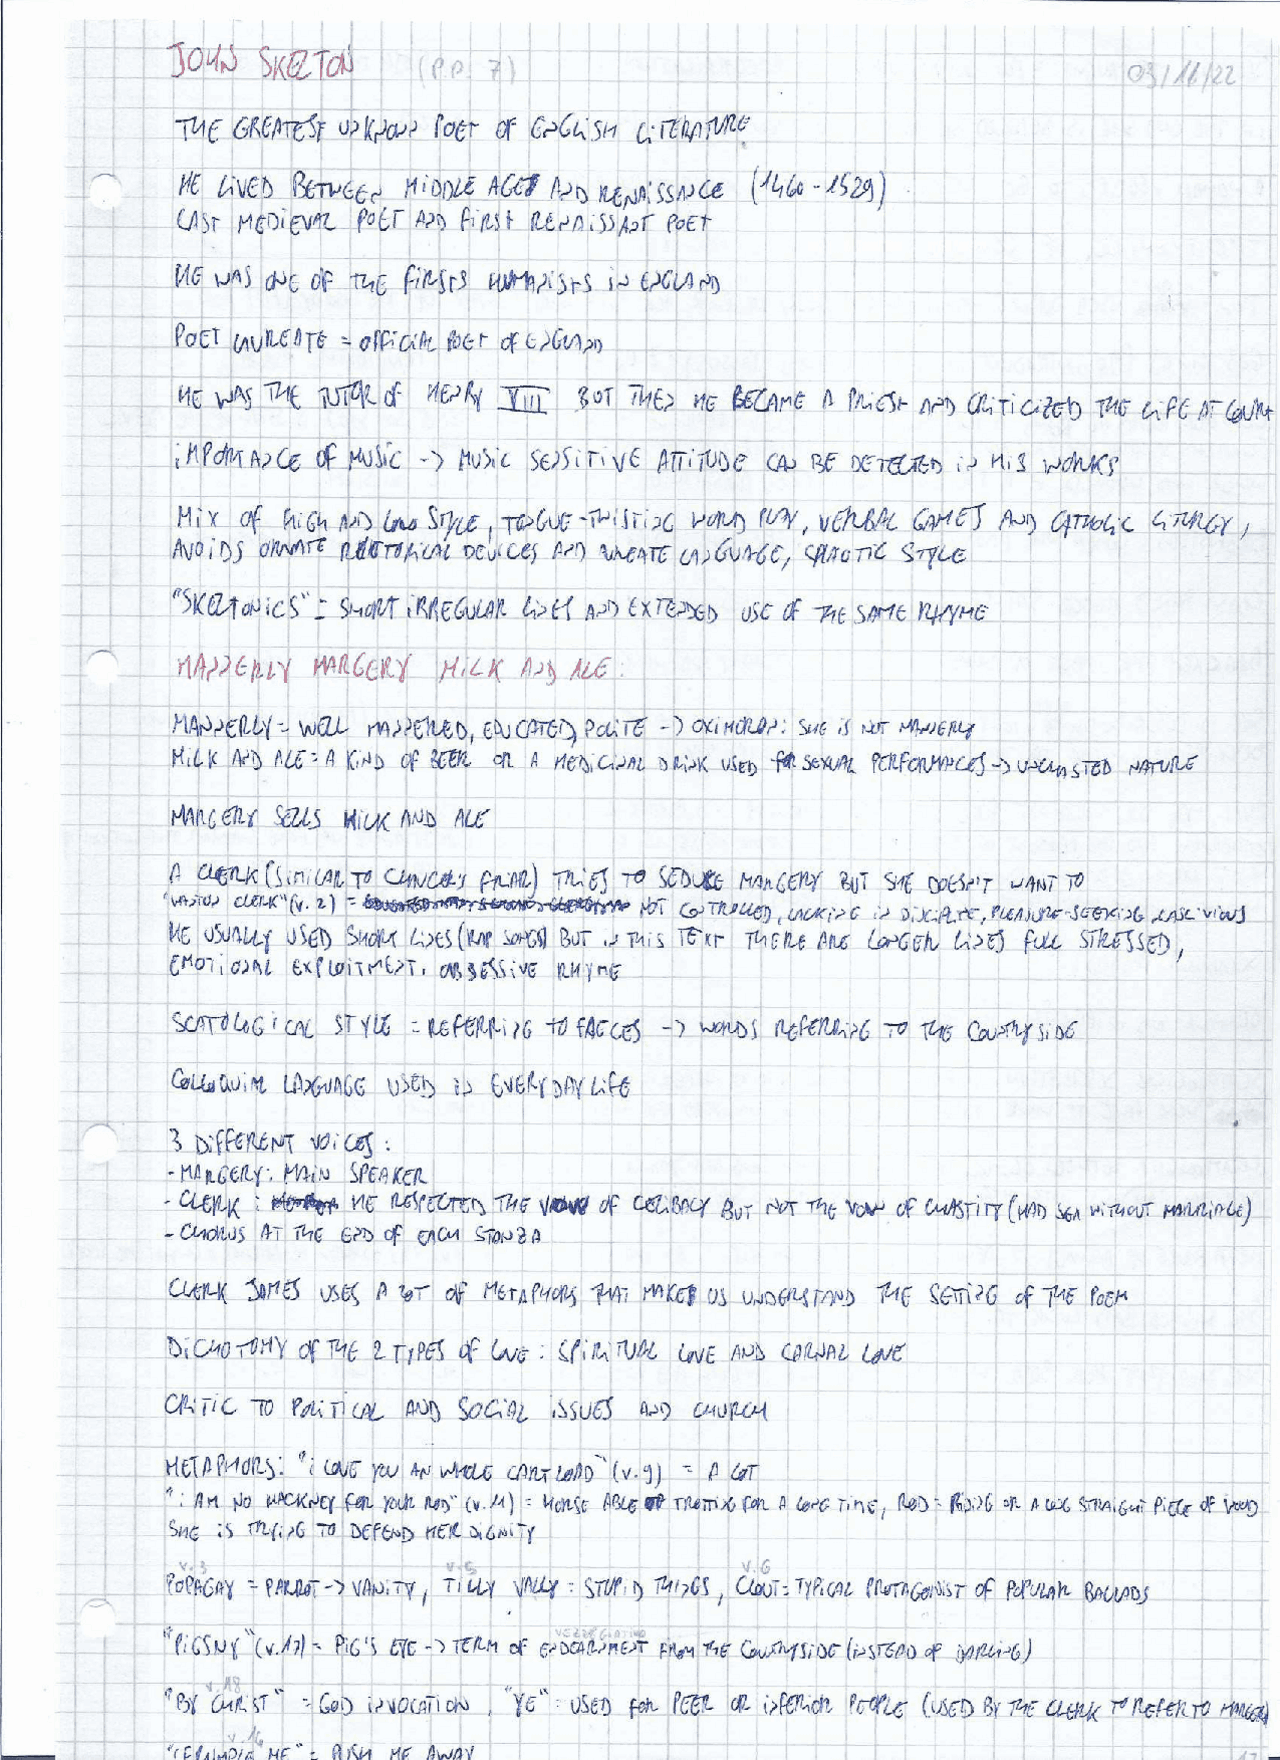 JOHN SKELTON (P.P. 7) 03/11/22
THE GREATEST UNKNOWN POET OF ENGLISH LITERATURE
HE LIVED BETWEEN MIDDLE AGES AND RENAISSANCE (1460-1529)
LAST MEDIEVAL POET AND FIRST RENAISSANT POET
HE WAS ONE OF THE FIRSTS HUMANISTS IN ENGLAND
POET LAUREATE = OFFICIAL POET OF ENGLAND
HE WAS THE TUTOR OF HENRY VIII BUT THEN HE BECAME A PRIEST AND CRITICIZED THE LIFE AT COURT
IMPORTANCE OF MUSIC -> MUSIC SENSITIVE ATTITUDE CAN BE DETECTED IN HIS WORKS
MIX OF HIGH AND LOW STYLE, TONGUE-TWISTING WORD PLAY, VERBAL GAMES AND CATHOLIC LITURGY,
AVOIDS ORNATE RHETORICAL DEVICES AND AUREATE LANGUAGE, CHAOTIC STYLE
"SKELTONICS" = SHORT IRREGULAR LINES AND EXTENDED USE OF THE SAME RHYME
MANNERLY MARGERY MILK AND ALE:
MANNERLY = WELL MANNERED, EDUCATED, POLITE -> OXIMORON: SHE IS NOT MANNERLY
MILK AND ALE = A KIND OF BEER OR A MEDICINAL DRINK USED FOR SEXUAL PERFORMANCES -> UNCHASTED NATURE
MARGERY SELLS MILK AND ALE
A CLERK (SIMILAR TO CHAUCER'S FRIAR) TRIES TO SEDUCE MARGERY BUT SHE DOESN'T WANT TO
"WANTON CLERK" (v. 2) = NOT CONTROLLED, LACKING IN DISCIPLITE, PLEASURE-SEEKING, LASCIVIOUS
HE USUALLY USED SHORT LINES (RAP SONGS) BUT IN THIS TEXT THERE ARE LONGER LINES FULL STRESSED,
EMOTIONAL EXPLOITMENT, OBSESSIVE RHYME
SCATOLOGICAL STYLE = REFERRING TO FAECES -> WORDS REFERRING TO THE COUNTRYSIDE
COLLOQUIAL LANGUAGE USED IN EVERYDAY LIFE
3 DIFFERENT VOICES:
- MARGERY: MAIN SPEAKER
- CLERK: HE RESPECTED THE VOW OF CELIBACY BUT NOT THE VOW OF CHASTITY (HAD SEX WITHOUT MARRIAGE)
- CHORUS AT THE END OF EACH STANZA
CLERK JAMES USES A LOT OF METAPHORS THAT MAKES US UNDERSTAND THE SETTING OF THE POEM
DICHOTOMY OF THE 2 TYPES OF LOVE: SPIRITUAL LOVE AND CARNAL LOVE
CRITIC TO POLITICAL AND SOCIAL ISSUES AND CHURCH
METAPHORS: "I LOVE YOU AN WHOLE CART LOAD" (v. 9) = A LOT
"I AM NO HACKNEY FOR YOUR ROD" (v. 11) = HORSE ABLE OF TROTTING FOR A LONG TIME, ROD = RIDING OR A LONG STRAIGHT PIECE OF WOOD
SHE IS TRYING TO DEFEND HER DIGNITY
v. 3 v. 5 v. 6
POPAGAY = PARROT -> VANITY, TILLY VALLY = STUPID THINGS, CLOUT = TYPICAL PROTAGONIST OF POPULAR BALLADS
VEZZEGGIATIVO
"PIGSNY" (v. 17) = PIG'S EYE -> TERM OF ENDEARNMENT FROM THE COUNTRYSIDE (INSTEAD OF DARLING)
v. 18
"BY CHRIST" = GOD INVOCATION, "YE" = USED FOR PEER OR INFERIOR PEOPLE (USED BY THE CLERK TO REFER TO MARGERY)
v. 16
ME" = PUSH ME AWAY